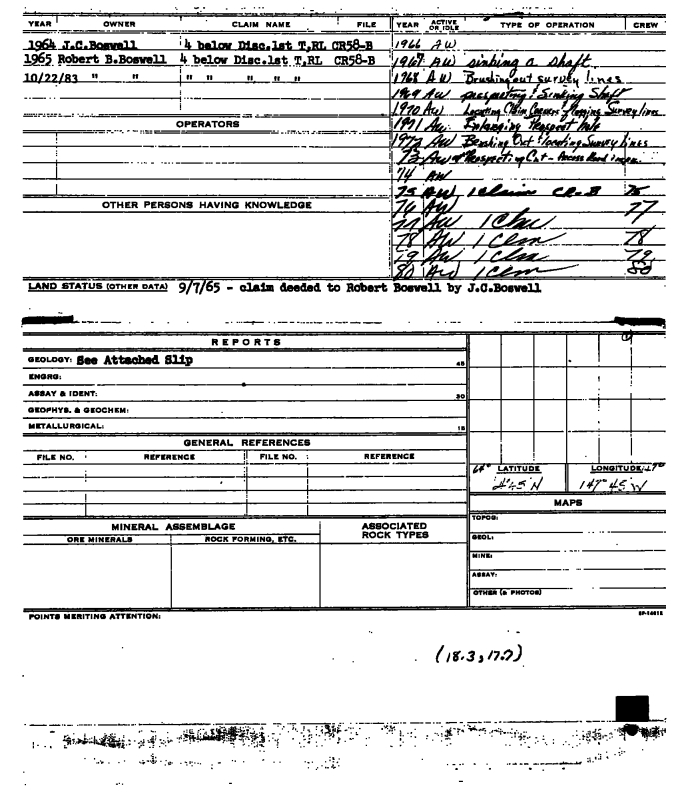 YEAR OWNER CLAIM NAME FILE YEAR ACTIVE OR IDLE TYPE OF OPERATION CREW
1964 J.C.Boswell 4 below Disc.lst T,RL CR58-B 1966 AW
1965 Robert B.Boswell 4 below Disc.lst T,RL CR58-B 1967 AW sinking a shaft
10/22/83 " " " " " " " 1968 AW Brushing out survey lines
1969 AW prospecting & Sinking Shaft
1970 AW Locating Claim Corners & Flagging Survey lines
OPERATORS 1971 AW Enlarging Prospect hole
1972 AW Brushing Out & locating Survey lines
73 AW Prospecting Cut - Access Road
74 AW
75 AW 1 Claim CR-B 75
OTHER PERSONS HAVING KNOWLEDGE 76 AW
77 AW 1 Clm 77
78 AW 1 Clm 78
79 AW 1 Clm 79
80 AW 1 Clm 80
LAND STATUS (OTHER DATA) 9/7/65 - claim deeded to Robert Boswell by J.C.Boswell
REPORTS
GEOLOGY: See Attached Slip 45
ENGRG:
ASSAY & IDENT: 30
GEOPHYS. & GEOCHEM:
METALLURGICAL: 15
GENERAL REFERENCES
FILE NO. REFERENCE FILE NO. REFERENCE
64° LATITUDE LONGITUDE
147° 45 W
MAPS
MINERAL ASSEMBLAGE ASSOCIATED ROCK TYPES TOPOG:
ORE MINERALS ROCK FORMING, ETC. GEOL:
MINE:
ASSAY:
OTHER (& PHOTOS)
POINTS MERITING ATTENTION:
(18.3, 17.7)